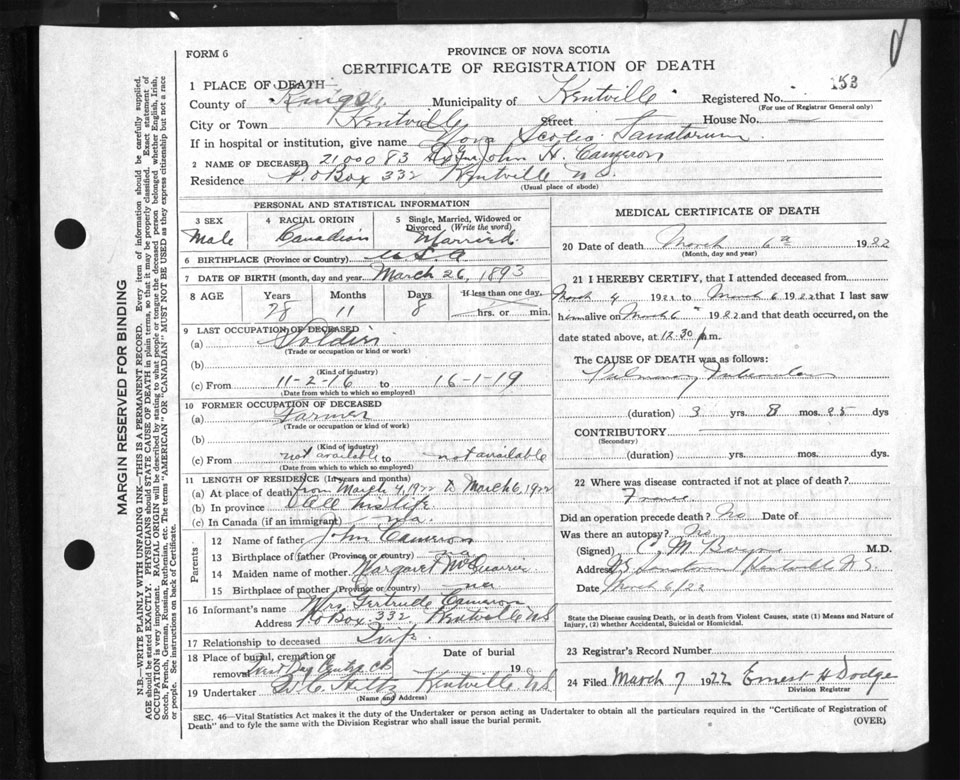 FORM 6
PROVINCE OF NOVA SCOTIA
CERTIFICATE OF REGISTRATION OF DEATH
153
1 PLACE OF DEATH
County of Kings Municipality of Kentville Registered No.
(For use of Registrar General only)
City or Town Kentville Street House No. —
If in hospital or institution, give name Nova Scotia Sanatorium
2 NAME OF DECEASED 2100083 John H. Cameron
Residence P.O Box 332 Kentville N.S.
(Usual place of abode)
PERSONAL AND STATISTICAL INFORMATION
3 SEX Male
4 RACIAL ORIGIN Canadian
5 Single, Married, Widowed or Divorced (Write the word) Married
6 BIRTHPLACE (Province or Country) U.S.A
7 DATE OF BIRTH (month, day and year) March 26, 1893
8 AGE Years 28 Months 11 Days 8 If less than one day, hrs. or min.
9 LAST OCCUPATION OF DECEASED
(a) Soldier
(Trade or occupation or kind or work)
(b)
(Kind of industry)
(c) From 11-2-16 to 16-1-19
(Date from which to which so employed)
10 FORMER OCCUPATION OF DECEASED
(a) Farmer
(Trade or occupation or kind of work)
(b)
(Kind of industry)
(c) From not available to not available
(Date from which to which so employed)
11 LENGTH OF RESIDENCE (In years and months)
(a) At place of death from March 4, 1922 to March 6, 1922
(b) In province all his life
(c) In Canada (if an immigrant) na.
Parents
12 Name of father John Cameron
13 Birthplace of father (Province or country) na
14 Maiden name of mother Margaret
15 Birthplace of mother (Province or country) na
16 Informant's name Mrs. Gertrude Cameron
Address P.O Box 332, Kentville NS
17 Relationship to deceased Wife
18 Place of burial, cremation or removal Date of burial 19
19 Undertaker Kentville N.S
(Name and Address)
MEDICAL CERTIFICATE OF DEATH
20 Date of death March 6th 1922
(Month, day and year)
21 I HEREBY CERTIFY, that I attended deceased from
March 4 1921 to March 6 1922 that I last saw
him alive on March 6 1922 and that death occurred, on
date stated above, at 12.30 p.m.
The CAUSE OF DEATH was as follows:
Pulmonary Tuberculosis
(duration) 3 yrs. 8 mos. 25 dys
CONTRIBUTORY
(Secondary)
(duration) yrs. mos. dys.
22 Where was disease contracted if not at place of death?
France
Did an operation precede death? No Date of
Was there an autopsy? No
(Signed) C. M. M.D.
Address N.S. Sanatorium Kentville N.S
Date March 6/22
State the Disease causing Death, or in death from Violent Causes, state (1) Means and Nature of Injury, (2) whether Accidental, Suicidal or Homicidal.
23 Registrar's Record Number
24 Filed March 7 1922 Ernest H Dodge
Division Registrar
SEC. 46—Vital Statistics Act makes it the duty of the Undertaker or person acting as Undertaker to obtain all the particulars required in the "Certificate of Registration of
Death" and to fyle the same with the Division Registrar who shall issue the burial permit.
(OVER)
MARGIN RESERVED FOR BINDING
N.B.—WRITE PLAINLY WITH UNFADING INK—THIS IS A PERMANENT RECORD. Every item of information should be carefully supplied.
AGE should be stated EXACTLY. PHYSICIANS should STATE CAUSE OF DEATH in plain terms, so that it may be properly classified. Exact statement of
OCCUPATION is very important. RACIAL ORIGIN will be described by stating to what people or tongue the deceased person belonged whether English, Irish,
Scotch, French, German, Russian, Ruthenian, etc. The terms "AMERICAN" OR "CANADIAN" MUST NOT BE USED as they express citizenship but not a race
or people. See instructions on back of Certificate.